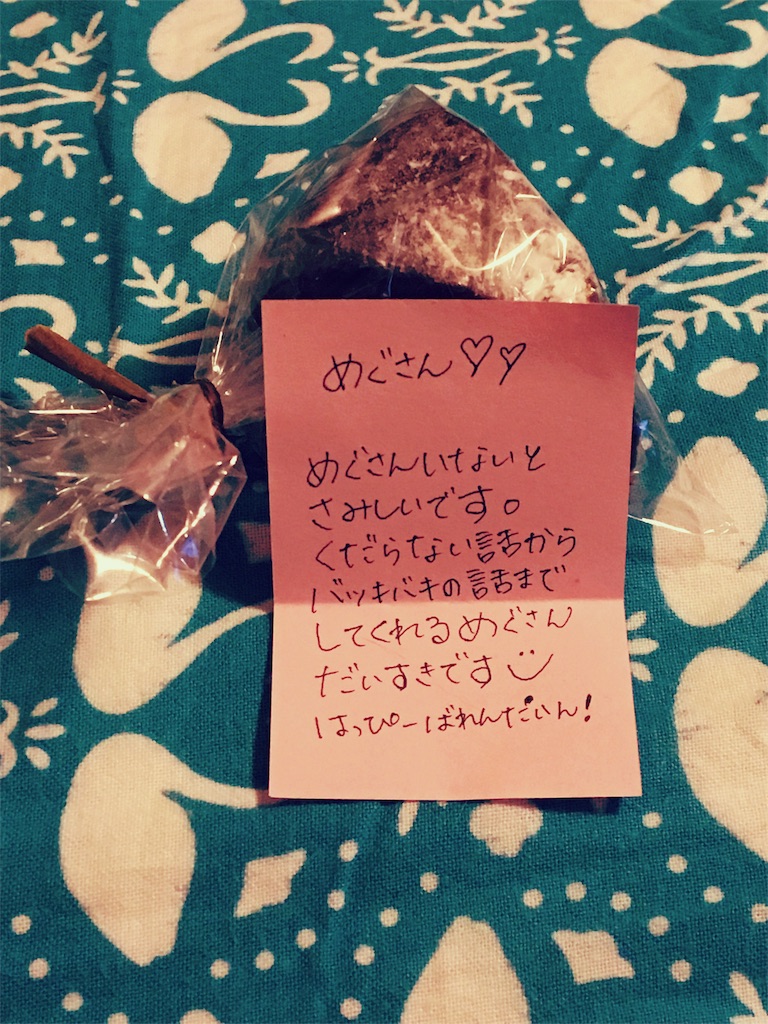 めぐさん♡♡
めぐさんいないと
さみしいです。
くだらない話から
バッキバキの話まで
してくれるめぐさん
だいすきです
はっぴーばれんたいん!